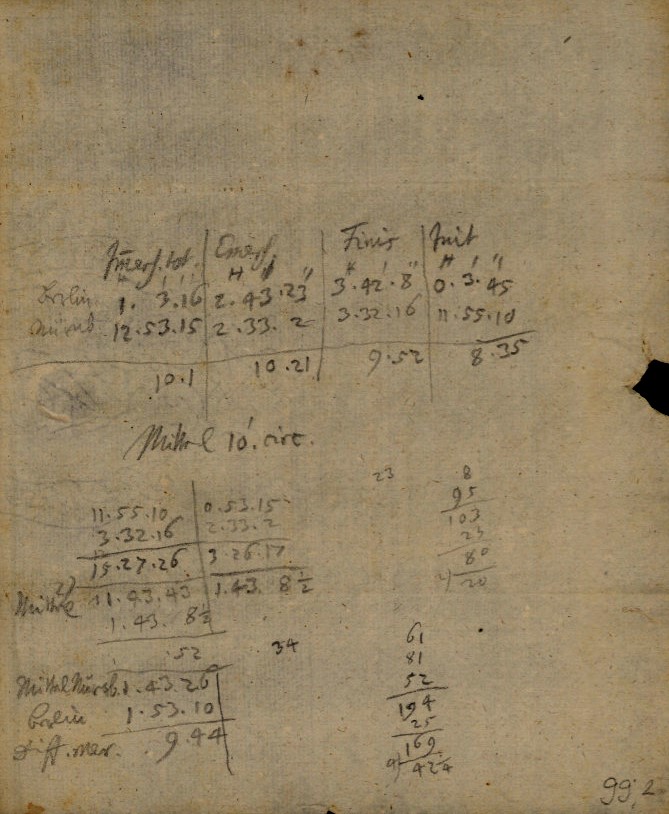 Imers. tot. Emers. Finis Init
H ' '' H ' '' H ' '' H ' ''
Berlin 1. 3.16 2.43.23 3.42.8 0.3.45
Nürnb. 12.53.15 2.33.2 3.32.16 11.55.10
10.1 10.21 9.52 8.35
Mittel 10'. circ.
11.55.10 0.53.15
3.32.16 2.33.2
15.27.26 3.26.17
Mittel 11.43.43 1.43. 8½
1.43. 8½
.52 34
Mittel Nürnb. 1.43.26
Berlin 1.53.10
Diff. mer. 9.44
23 8
95
103
23
80
4) 20
61
81
52
194
25
169
42¼
99, 2